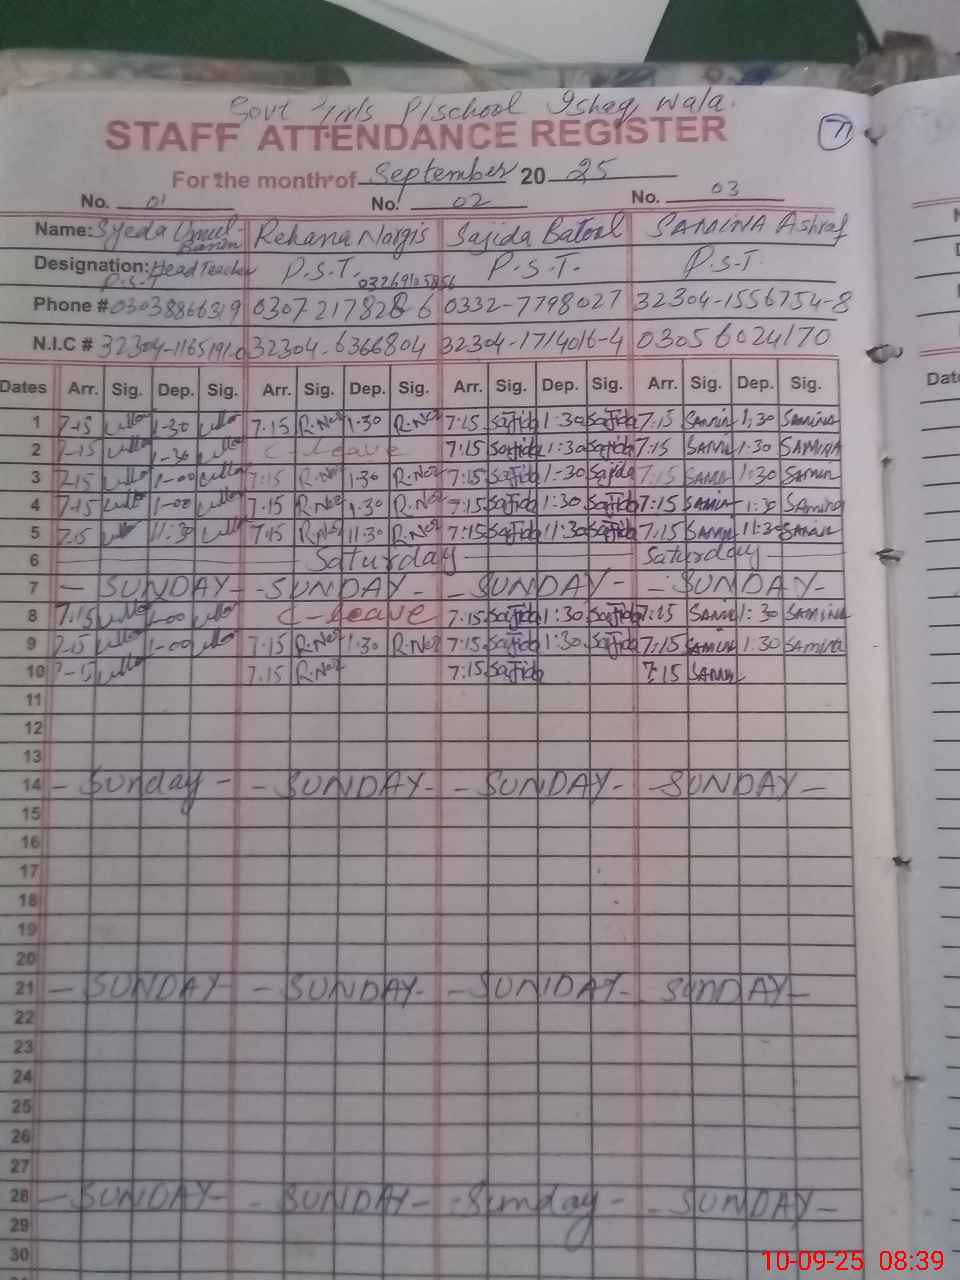 Govt Girls P/school Ishaq wala.
STAFF ATTENDANCE REGISTER
71
For the month of September 20 25
No. 01 No. 02 No. 03
Name: Syeda Ummul- Rehana Nargis Sajida Batool SAMINA Ashraf
Designation: Head Teacher P.S.T. P.S.T. P.S.T.
P.S.T
Phone # 03038866319 0307 2178286 0332-7798027 32304-1556754-8
N.I.C # 32304-6366804 32304-1714016-4 03056024170
Dates Arr. Sig. Dep. Sig. Arr. Sig. Dep. Sig. Arr. Sig. Dep. Sig. Arr. Sig. Dep. Sig.
1 7-15 1-30 7.15 R.Nar 1.30 R.Nar 7:15 Sajida 1:30 Sajida 7:15 SAMIN 1:30 SAMINA
2 7-15 1-30 C-leave 7:15 Sajida 1:30 Sajida 7:15 SAMIN 1:30 SAMINA
3 7-15 1-00 7:15 R.Nar 1.30 R.Nar 7:15 Sajida 1:30 Sajida 7:15 SAMIN 1:30 SAMIN
4 7-15 1-00 7.15 R.Nar 1.30 R.Nar 7:15 Sajida 1:30 Sajida 7:15 SAMIN 1:30 SAMINA
5 11:30 7.15 R.Nar 11.30 R.Nar 7:15 Sajida 11:30 Sajida 7:15 SAMIN 11:30 SAMIN
6 Saturday Saturday
7 - SUNDAY - SUNDAY - - SUNDAY - - SUNDAY -
8 7.15 1-00 C-leave 7:15 Sajida 1:30 Sajida 7:15 SAMIN 1:30 SAMINA
9 7-15 1-00 7.15 R.Nar 1.30 R.Nar 7:15 Sajida 1:30 Sajida 7:15 SAMIN 1:30 SAMINA
10 7-15 7.15 R.Nar 7:15 Sajida 7:15 SAMIN
11
12
13
14 - Sunday - - SUNDAY - - SUNDAY - - SUNDAY -
15
16
17
18
19
20
21 - SUNDAY - - SUNDAY - - SUNIDAY - SUNDAY -
22
23
24
25
26
27
28 - SUNDAY - - SUNDAY - - Sunday - - SUNDAY -
29
30
Date
10-09-25 08:39